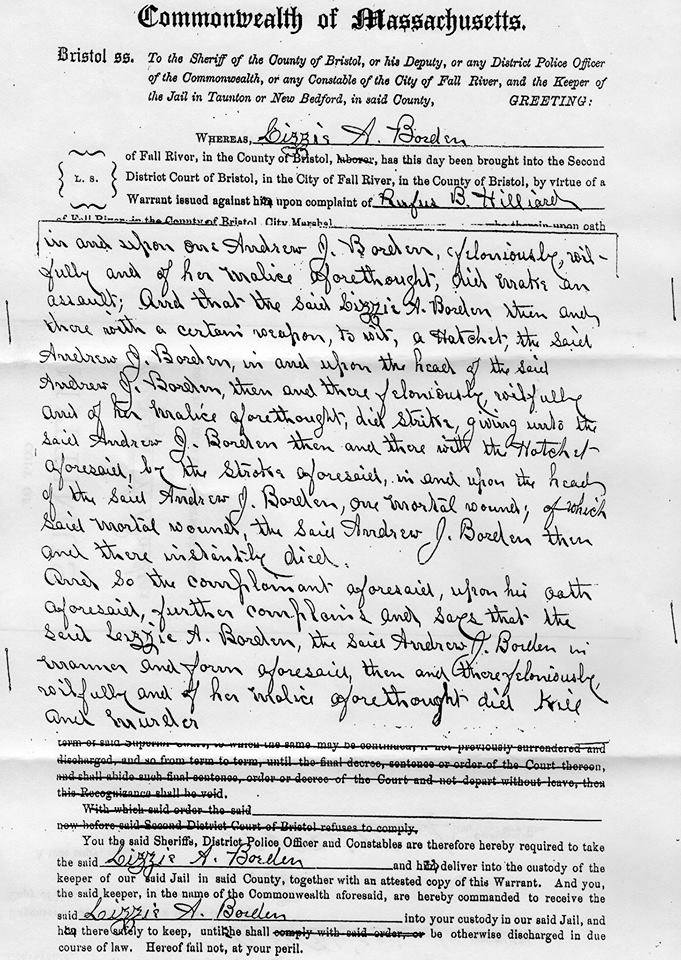 Commonwealth of Massachusetts.
Bristol ss. To the Sheriff of the County of Bristol, or his Deputy, or any District Police Officer
of the Commonwealth, or any Constable of the City of Fall River, and the Keeper of
the Jail in Taunton or New Bedford, in said County, GREETING:
WHEREAS, Lizzie A. Borden
of Fall River, in the County of Bristol, laborer, has this day been brought into the Second
L. S. District Court of Bristol, in the City of Fall River, in the County of Bristol, by virtue of a
Warrant issued against her upon complaint of Rufus B. Hilliard
of Fall River, in the County of Bristol, City Marshal, who therein upon oath
in and upon one Andrew J. Borden, feloniously, wil-
fully and of her malice aforethought, did make an
assault; And that the said Lizzie A. Borden then and
there with a certain weapon, to wit, a Hatchet, the said
Andrew J. Borden, in and upon the head of the said
Andrew J. Borden, then and there feloniously, wilfully
and of her malice aforethought, did strike, giving unto the
said Andrew J. Borden then and there with the Hatchet
aforesaid, by the stroke aforesaid, in and upon the head
of the said Andrew J. Borden, one mortal wound; of which
said mortal wound, the said Andrew J. Borden then
and there instantly died.
And so the complainant aforesaid, upon his oath
aforesaid, further complains and says that the
said Lizzie A. Borden, the said Andrew J. Borden in
manner and form aforesaid, then and there feloniously,
wilfully and of her malice aforethought did kill
and murder
term of said Superior Court, to which the same may be continued, if not previously surrendered and
discharged, and so from term to term, until the final decree, sentence or order of the Court thereon,
and shall abide such final sentence, order or decree of the Court and not depart without leave, then
this Recognizance shall be void.
With which said order the said
now before said Second District Court of Bristol refuses to comply.
You the said Sheriffs, District Police Officer and Constables are therefore hereby required to take
the said Lizzie A. Borden and her deliver into the custody of the
keeper of our said Jail in said County, together with an attested copy of this Warrant. And you,
the said keeper, in the name of the Commonwealth aforesaid, are hereby commanded to receive the
said Lizzie A. Borden into your custody in our said Jail, and
her there safely to keep, until she shall comply with said order, or be otherwise discharged in due
course of law. Hereof fail not, at your peril.